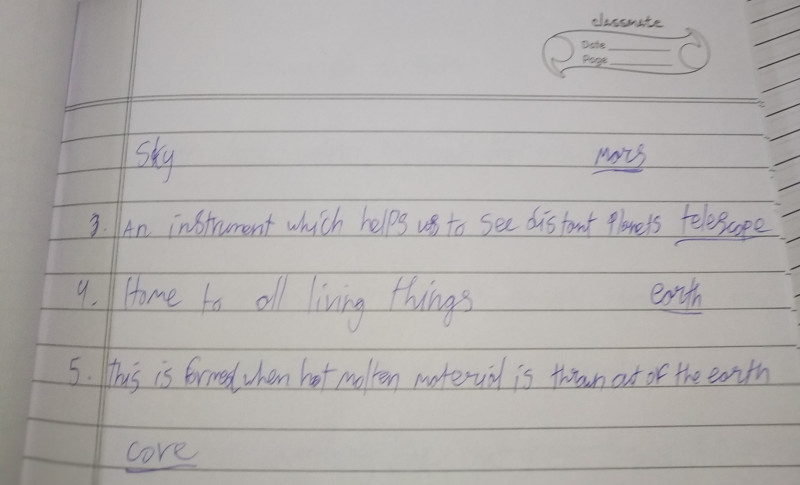 classmate
Date
Page
Sky Mars
3. An instrument which helps us to see distant planets telescope
4. Home to all living things earth
5. This is formed when hot molten material is thrown out of the earth
core